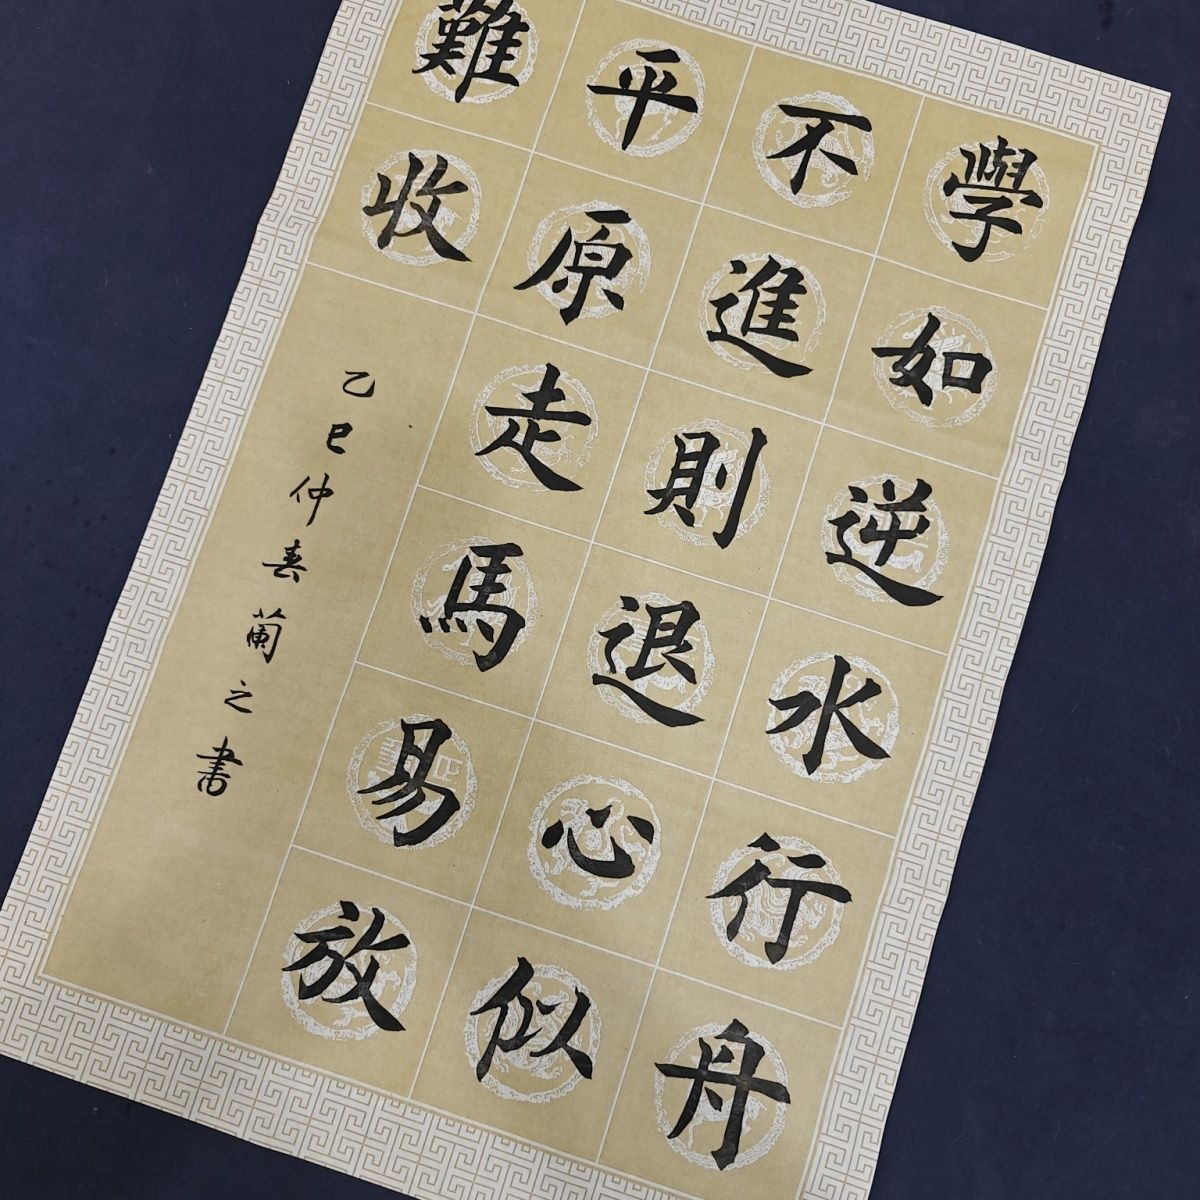 學如逆水行舟
不進則退心似
平原走馬易放
難收
乙巳仲春蘭之書